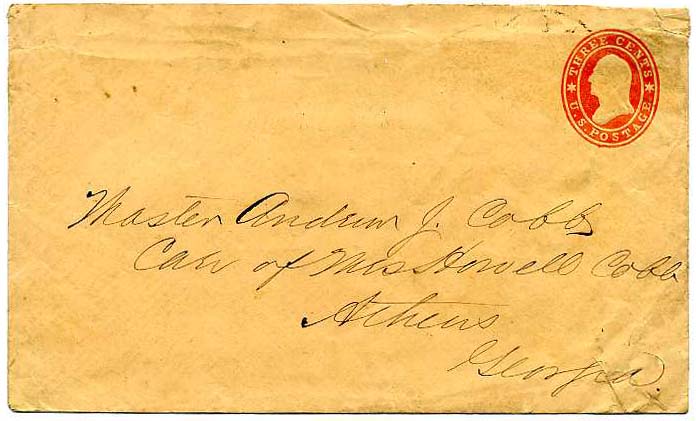 THREE CENTS
U.S. POSTAGE
Master Andrew J. Cobb
Care of Mrs Howell Cobb
Athens
Georgia.